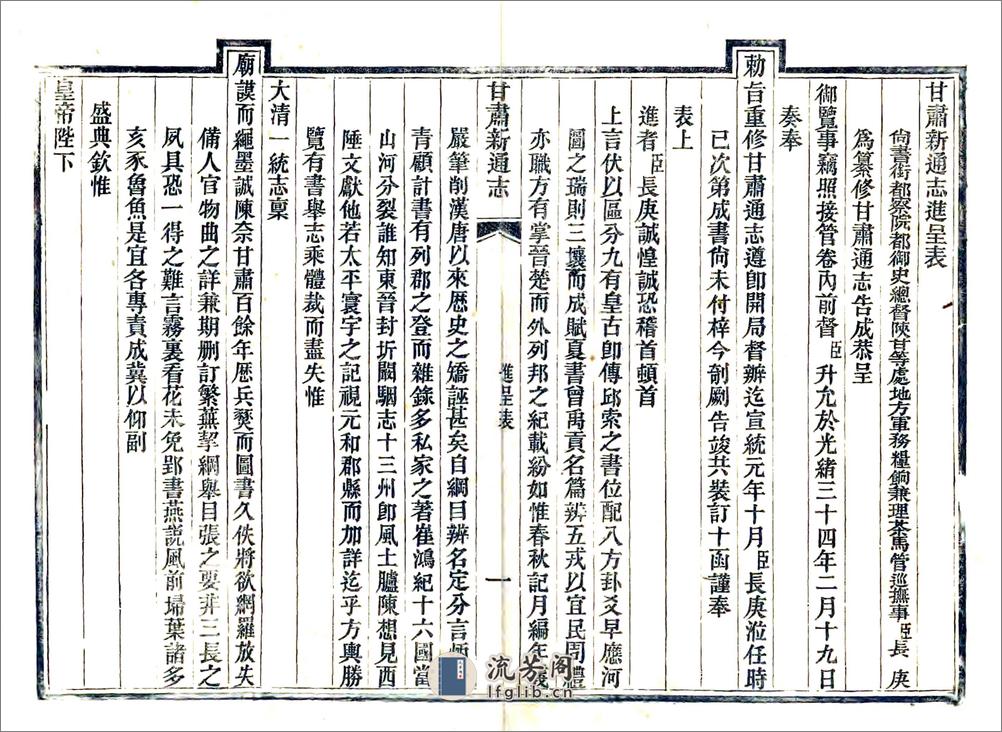 甘肅新通志進呈表
尙書銜都察院都御史總督陝甘等處地方軍務糧餉兼理茶馬管巡撫事臣長庚
爲纂修甘肅通志告成恭呈
御覽事竊照接管卷內前督臣升允於光緒三十四年二月十九日
奏奉
勅旨重修甘肅通志遵卽開局督辦迄宣統元年十月臣長庚涖任時
已次第成書尙未付梓今剞劂告竣共裝訂十函謹奉
表上
進者臣長庚誠惶誠恐稽首頓首
上言伏以區分九有皇古卽傳邱索之書位配八方卦爻早應河
圖之瑞則三壤而成賦夏書曾禹貢名篇辨五戎以宜民周禮
亦職方有掌晉楚而外列邦之紀載紛如惟春秋記月編年義
甘肅新通志
進呈表
一
嚴筆削漢唐以來歷史之矯誣甚矣自綱目辨名定分言炳
靑顧計書有列郡之登而雜錄多私家之著崔鴻紀十六國當
山河分裂誰知東晉封圻闞駰志十三州卽風土臚陳想見西
陲文獻他若太平寰宇之記視元和郡縣而加詳迄乎方輿勝
覽有書舉志乘體裁而盡失惟
大淸一統志稟
廟謨而繩墨誠陳奈甘肅百餘年歷兵燹而圖書久佚將欲網羅放失
備人官物曲之詳兼期刪訂繁蕪挈綱舉目張之要非三長之
夙具恐一得之難言霧裏看花未免郢書燕說風前埽葉諸多
亥豕魯魚是宜各專責成冀以仰副
盛典欽惟
皇帝陛下
流芳阁
lfglib.cn